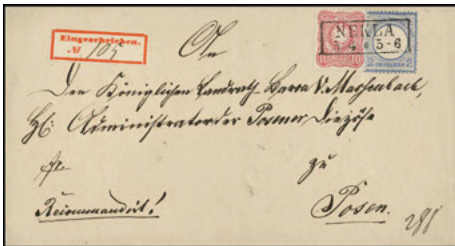 Eingeschrieben.
№ 185
An
NEKLA
4 5-6
10
2
Den Königlichen Landrath Herrn v. Massenbach,
Administrator der Posener Diözöse
zu
Recommandirt!
Posen.